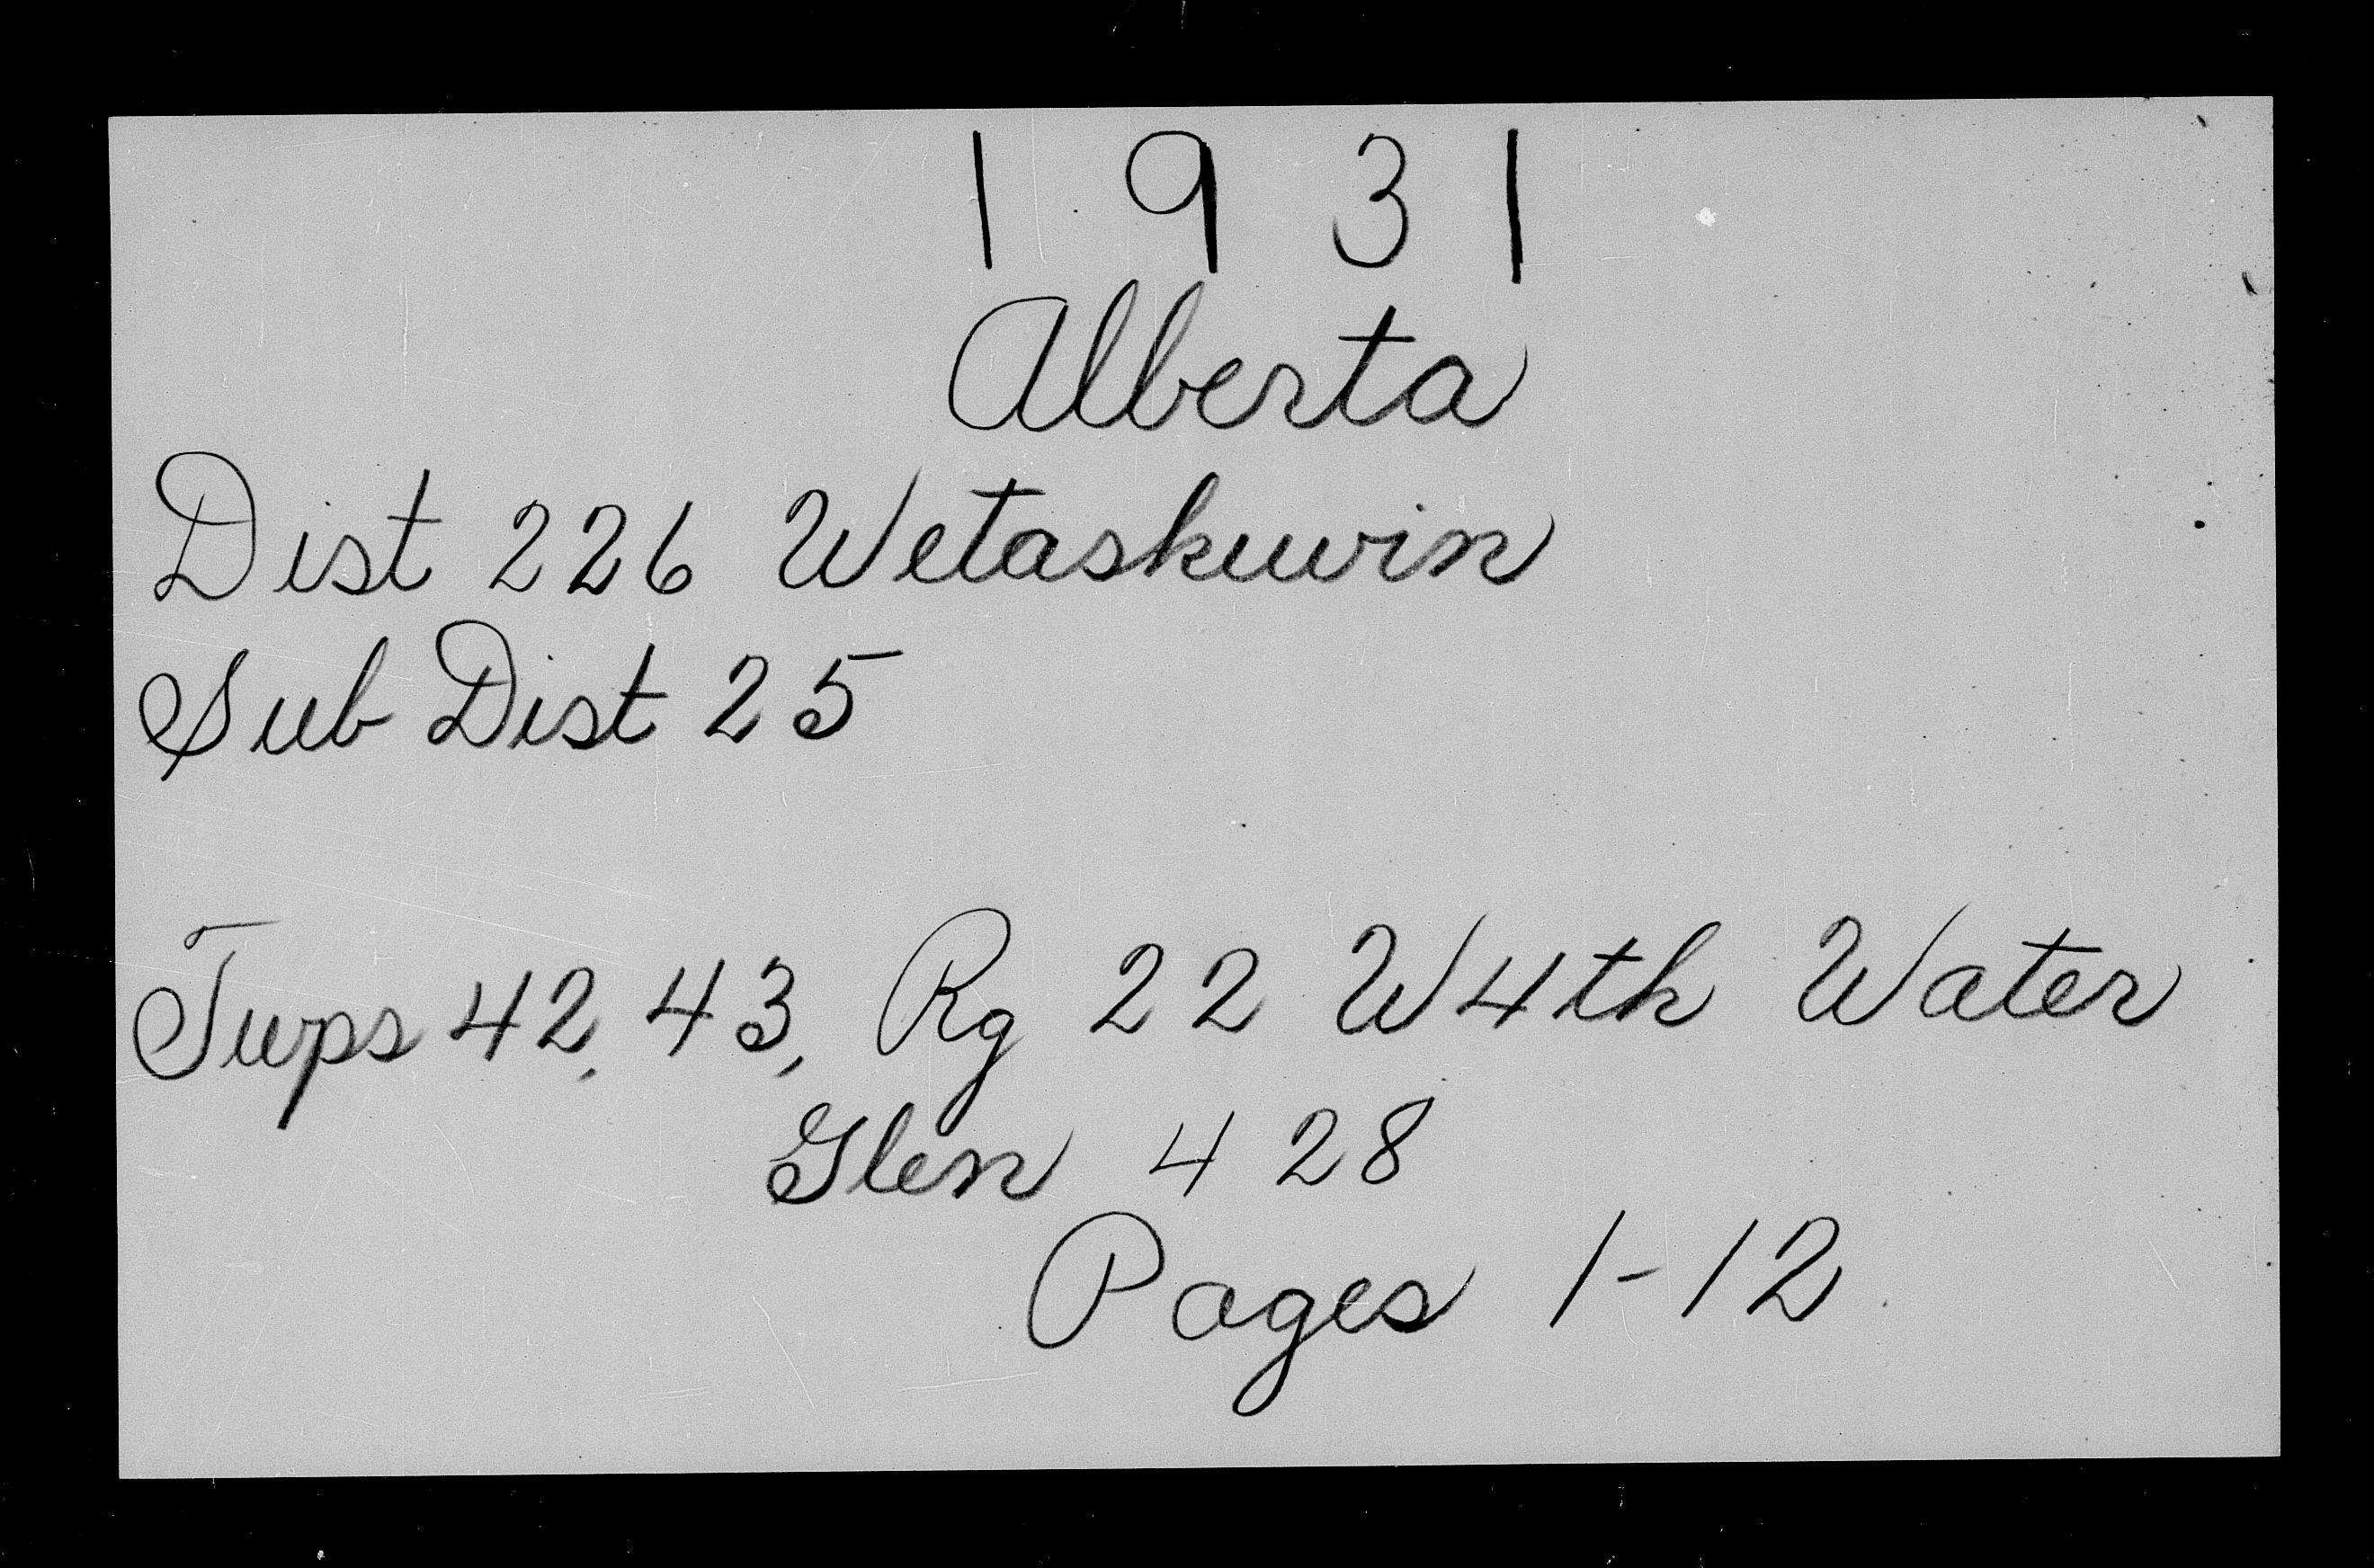 1931
Alberta
Dist 226 Wetaskuwin
Sub Dist 25
Twps 42, 43, Rg 22 W4th Water
Glen 428
Pages 1-12